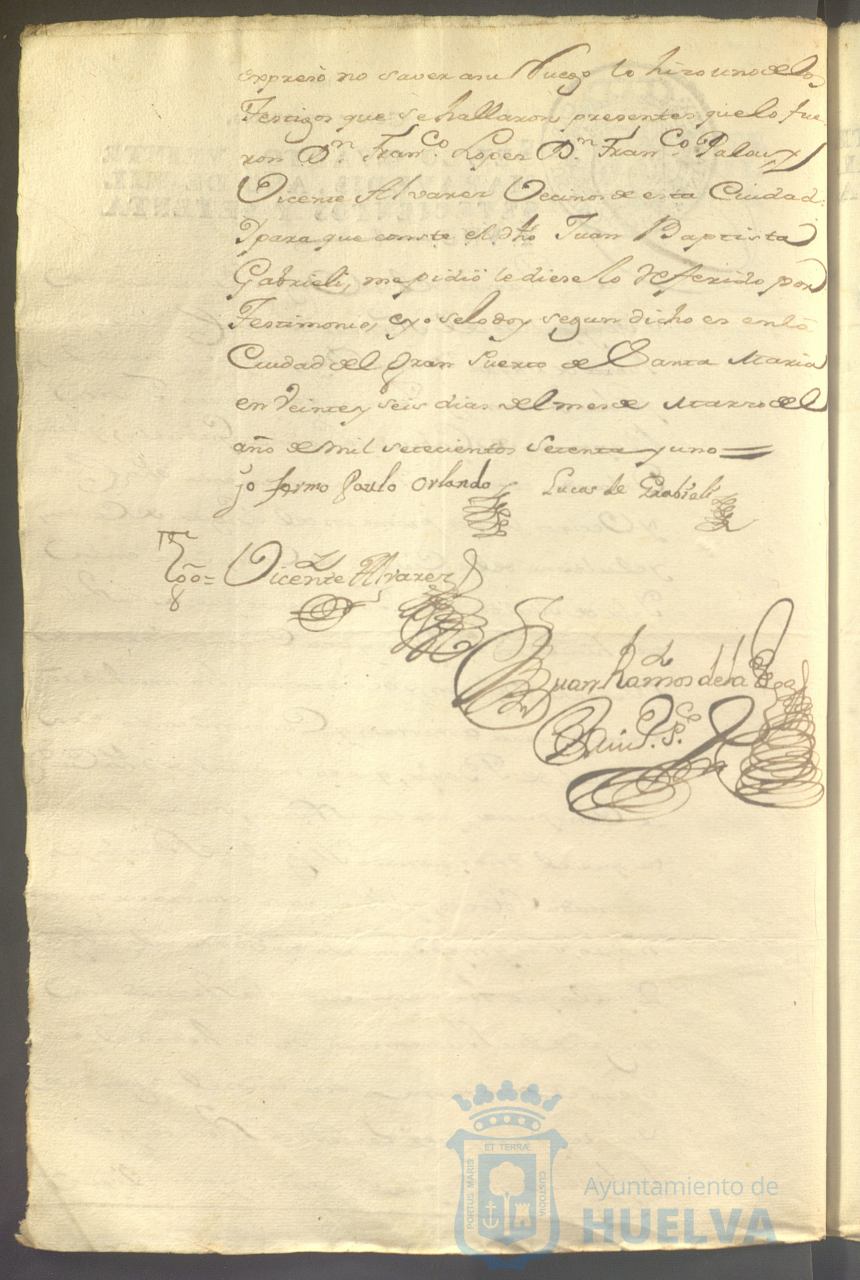 expresò no saver a su Ruego lo hizo uno de los
Testigos que se hallaron presentes que lo fue
ron Dn. Franco. Lopez Dn. Franco. Palou y
Vicente Alvarez Vecinos de esta Ciudad:
Ypara que conste el dho Juan Baptista
Gabrieli, me pidiò le diese lo referido por
Testimonio, è yo selo doy segun dicho es en la
Ciudad del Gran Puerto de Santa Maria
en Veinte y seis dias del mes de Marzo del
año de mil setecientos Setenta y uno
jo fermo Paulo Orlando Lucas de Grabieli
Tgo = Vicente Alvarez
Juan Ramos de la
PORTUS MARIS
ET TERRÆ
CUSTODIA
Ayuntamiento de
HUELVA